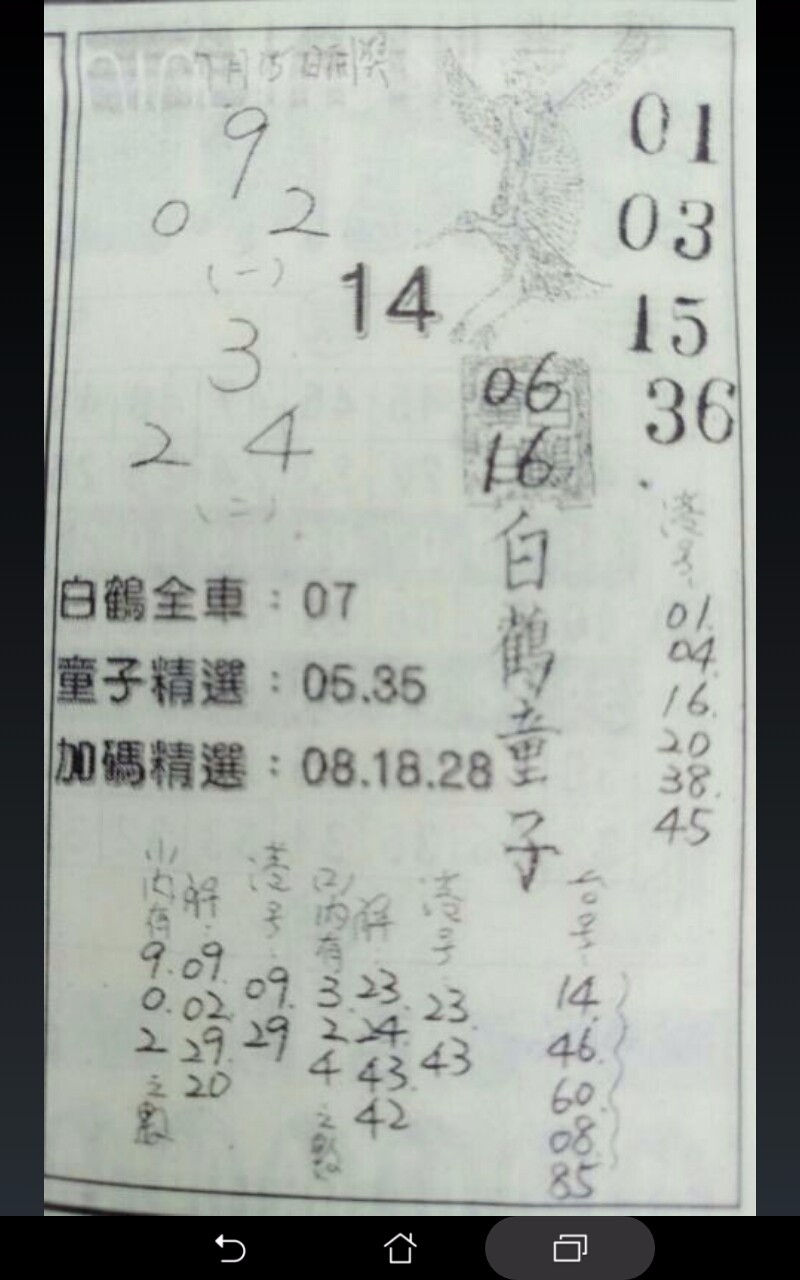 9
0 2
(一)
3
2 4
(二)
14
01
03
15
36
06
16
白鶴童子
白鶴全車：07
童子精選：05.35
加碼精選：08.18.28
港号:
01.
04.
16.
20
38.
45
(一)内有
9.
0.
2
之數
解:
09.
02.
29.
20
港号:
09.
29
(二)内有
3.
2.
4
之數
解:
23.
24.
43.
42
港号:
23.
43
14.
46.
60.
08.
85